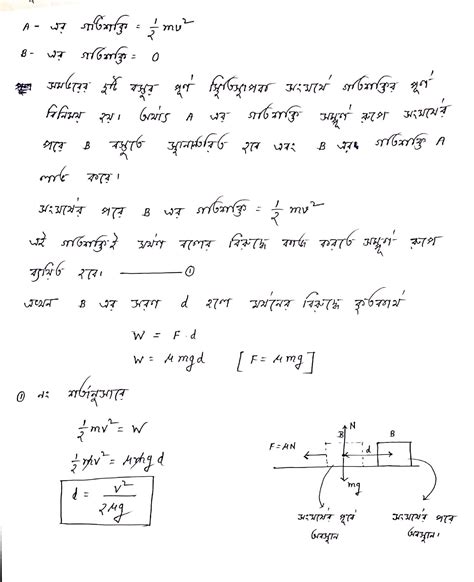 A - এর গতিশক্তি = 1/2 mv²
B - এর গতিশক্তি = 0
সমভরের দুটি বস্তুর পূর্ণ স্থিতিস্থাপক সংঘর্ষে গতিশক্তির পূর্ণ
বিনিময় হয়। অর্থাৎ A এর গতিশক্তি সম্পূর্ণ রূপে সংঘর্ষের
পরে B বস্তুতে স্থানান্তরিত হবে এবং B এর গতিশক্তি A
লাভ করে।
সংঘর্ষের পরে B এর গতিশক্তি = 1/2 mv²
এই গতিশক্তিই ঘর্ষণ বলের বিরুদ্ধে কাজ করতে সম্পূর্ণ রূপে
ব্যয়িত হবে। ——— ①
এখন B এর সরণ d হলে ঘর্ষনের বিরুদ্ধে কৃতকার্য
W = F . d
W = μmgd [F = μmg]
① নং শর্তানুসারে
1/2 mv² = W
1/2 mv² = μmgd
d = v²/2μg
N
B
B
F = μN
d
mg
সংঘর্ষের পূর্বে
অবস্থান
সংঘর্ষের পরে
অবস্থান।